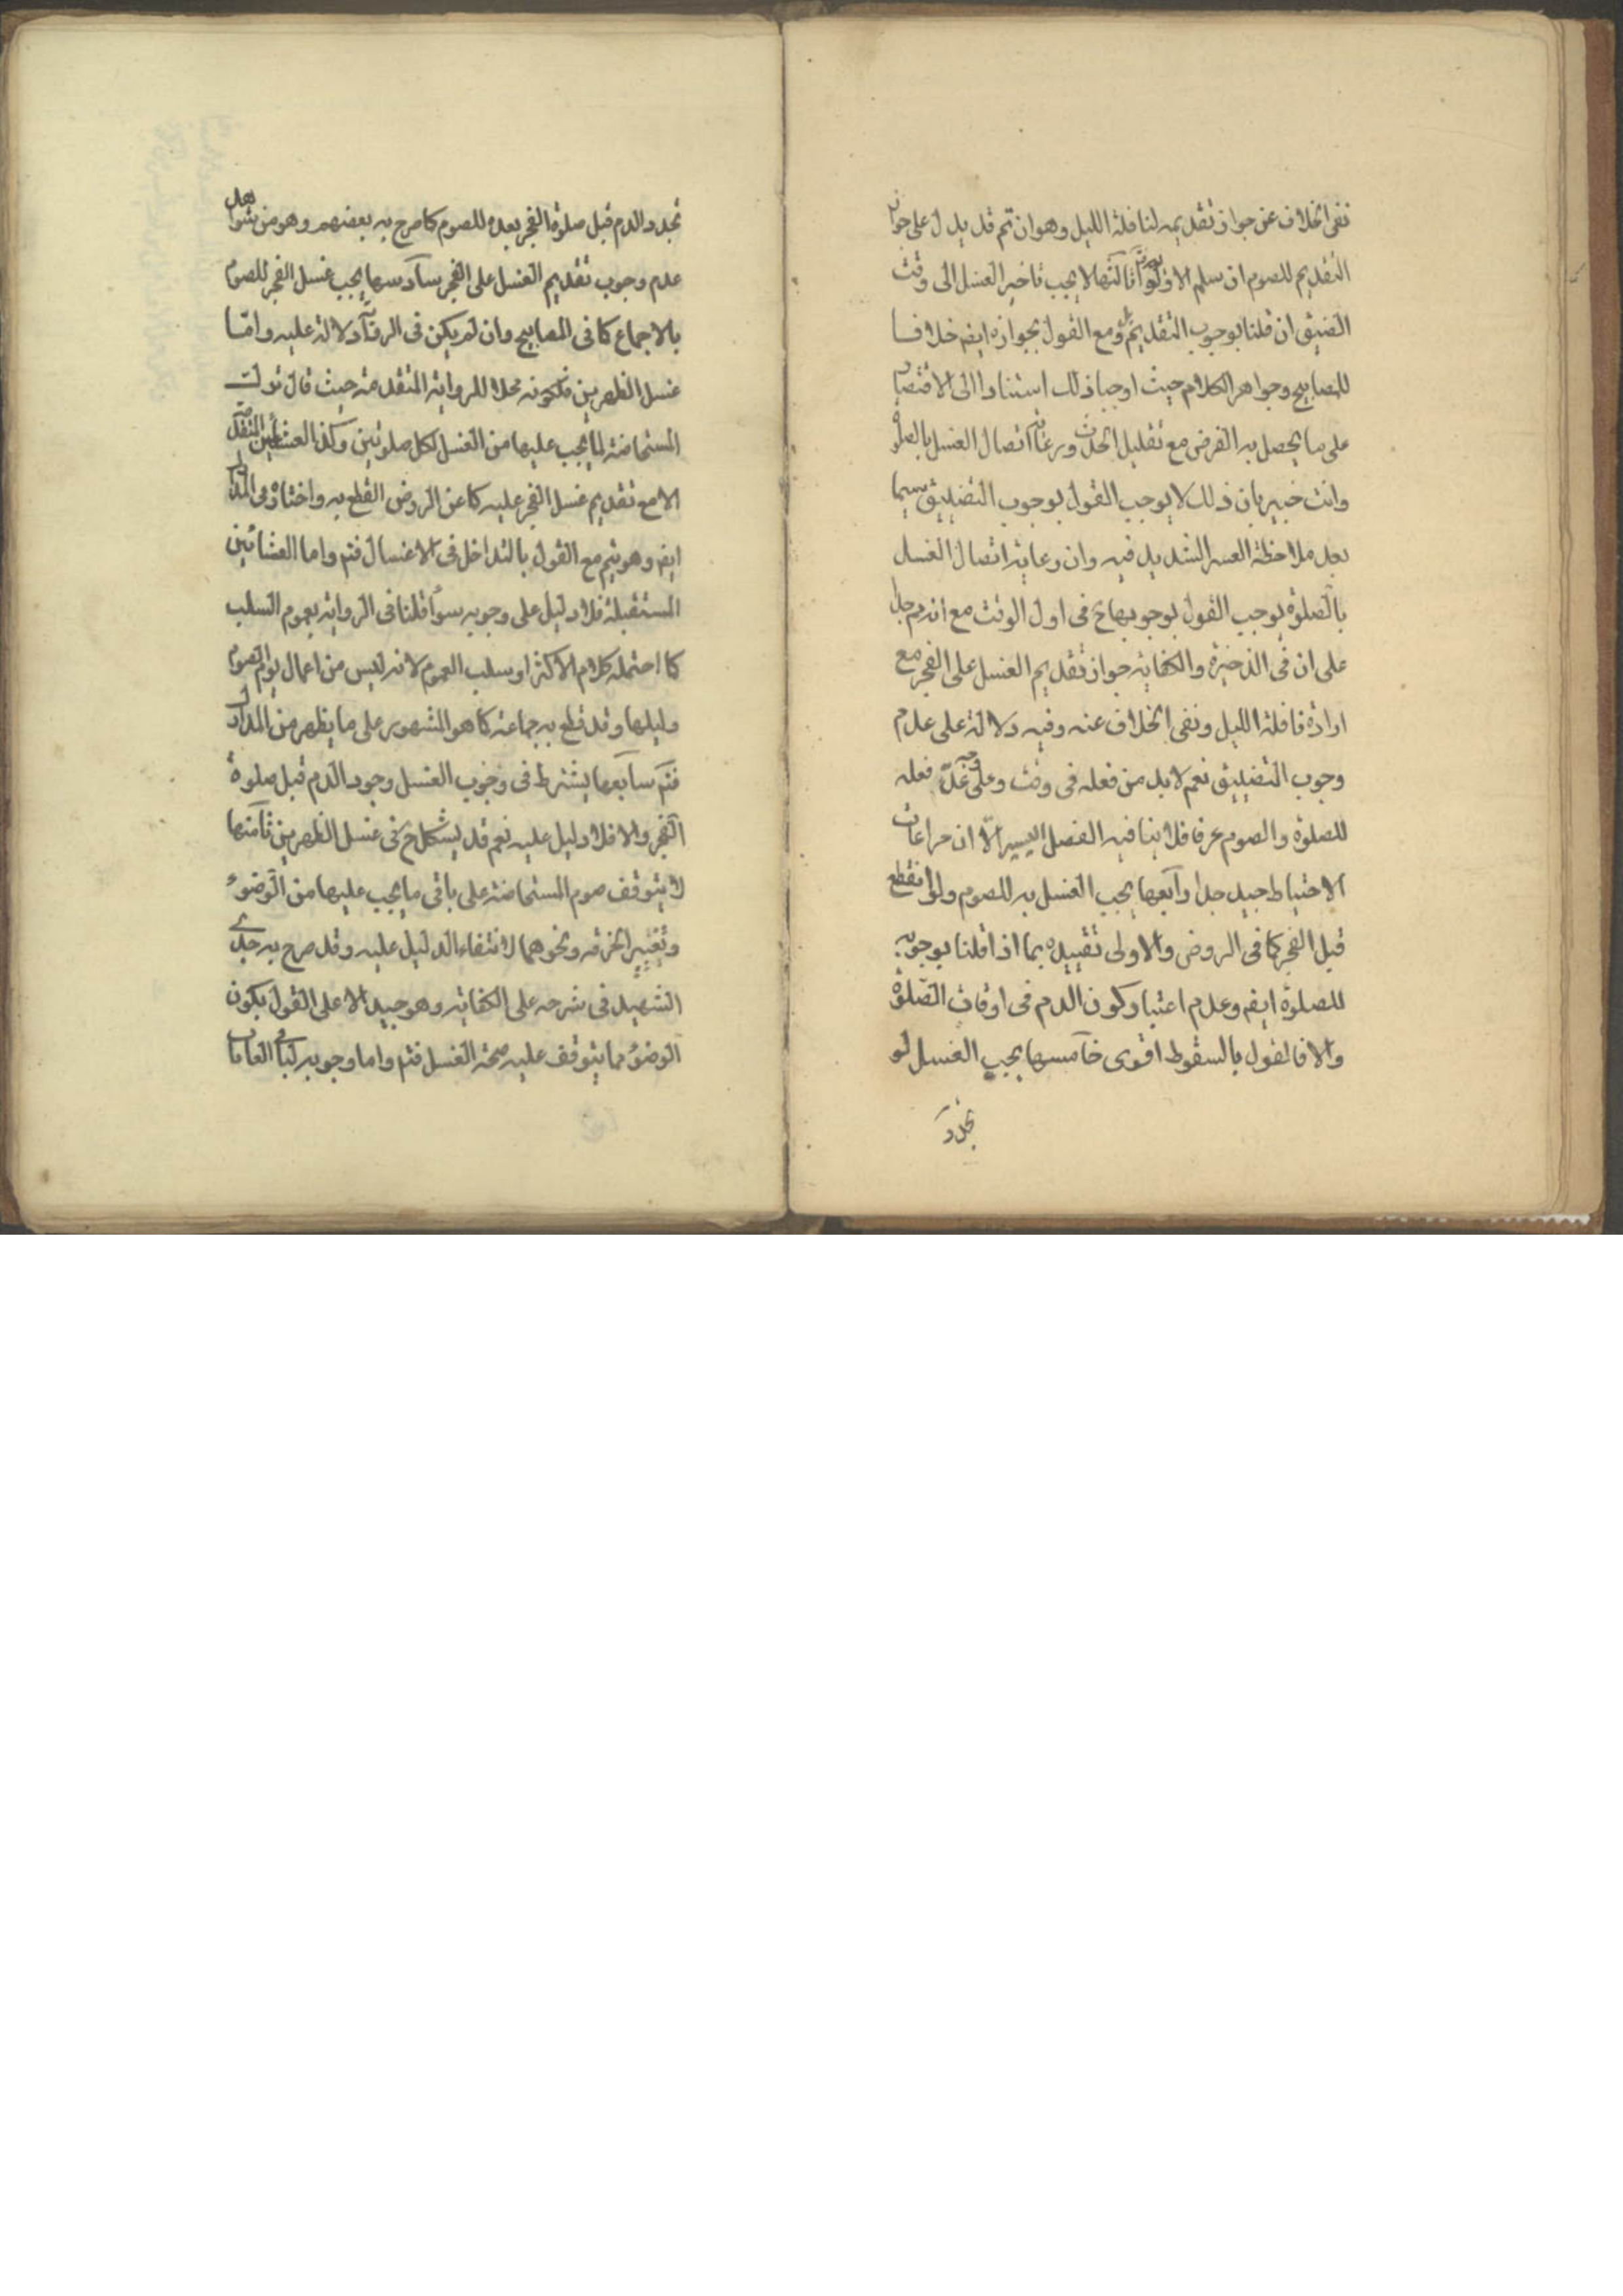 نفى الخلاف عن جواز تقديمه لنافلة الليل وهو ان تم قد يدل على جواز
التقديم للصوم ان سلم الاولوية ثالثها لا يجب تاخير الغسل الى وقت
الضيق ان قلنا بوجوب التقديم بل ومع القول بجوازه ايضا خلافا
للمصابيح وجواهر الكلام حيث اوجبا ذلك استنادا الى الاقتصار
على ما يحصل به الفرض مع تقليل الحدث ورعاية اتصال الغسل بالصلوة
وانت خبير بان ذلك لا يوجب القول بوجوب التضييق سيما
بعد ملاحظة العسر الشديد فيه وان رعاية اتصال الغسل
بالصلوة يوجب القول بوجوبها ح في اول الوقت مع انه
على ان في الذخيرة والكفاية جواز تقديم الغسل على الفجر مع
ارادة نافلة الليل ونفى الخلاف عنه وفيه دلالة على عدم
وجوب التضييق نعم لا بد من فعله في وقت وعلى وجه فعله
للصلوة والصوم عرفا فلا ينافيه الفصل اليسير الا ان مراعات
الاحتياط جيد جدا رابعها يجب الغسل به للصوم ولو انقطع
قبل الفجر كما في الروض والاولى تقييده بما اذا قلنا بوجوبه
للصلوة ايضا وعدم اعتبار كون الدم في اوقات الصلوة
والا فالقول بالسقوط اقوى خامسها يجب الغسل لو
تجدد
تجدد الدم قبل صلوة الفجر بعده للصوم كما صرح به بعضهم وهو من شواهد
عدم وجوب تقديم الغسل على الفجر سادسها يجب غسل الفجر للصوم
بالاجماع كما في المصابيح وان لم يكن في الرواية دلالة عليه واما
غسل الظهرين فلكونه محلا للرواية المتقدمة حيث قال تركت
المستحاضة لما يجب عليها من الغسل لكل صلوتين وكذا العشائين المتقدمين
الا مع تقديم غسل الفجر عليه كما عن الروض القطع به واختاره في المدارك
ايضا وهو يتم مع القول بالتداخل في الاغسال فتم واما العشائين
المستقبلة فلا دليل على وجوبه سواء قلنا في الرواية بعموم السلب
كما احتمله كلام الاكثر او سلب العموم لانه ليس من اعمال يوم الصوم
وليلها وقد قطع به جماعة كما هو المشهور على ما يظهر من المدارك
فتم سابعها يشترط في وجوب الغسل وجود الدم قبل صلوة
الفجر والا فلا دليل عليه نعم قد يشكل ح في غسل الظهرين ثامنها
لا يتوقف صوم المستحاضة على باقي ما يجب عليها من الوضوء
وتغيير الخرقة ونحوهما لانتفاء الدليل عليه وقد صرح به جدي
الشهيد في شرحه على الكفاية وهو جيد الا على القول بكون
الوضوء مما يتوقف عليه صحة الغسل فتم واما وجوبه لباقي الغايات